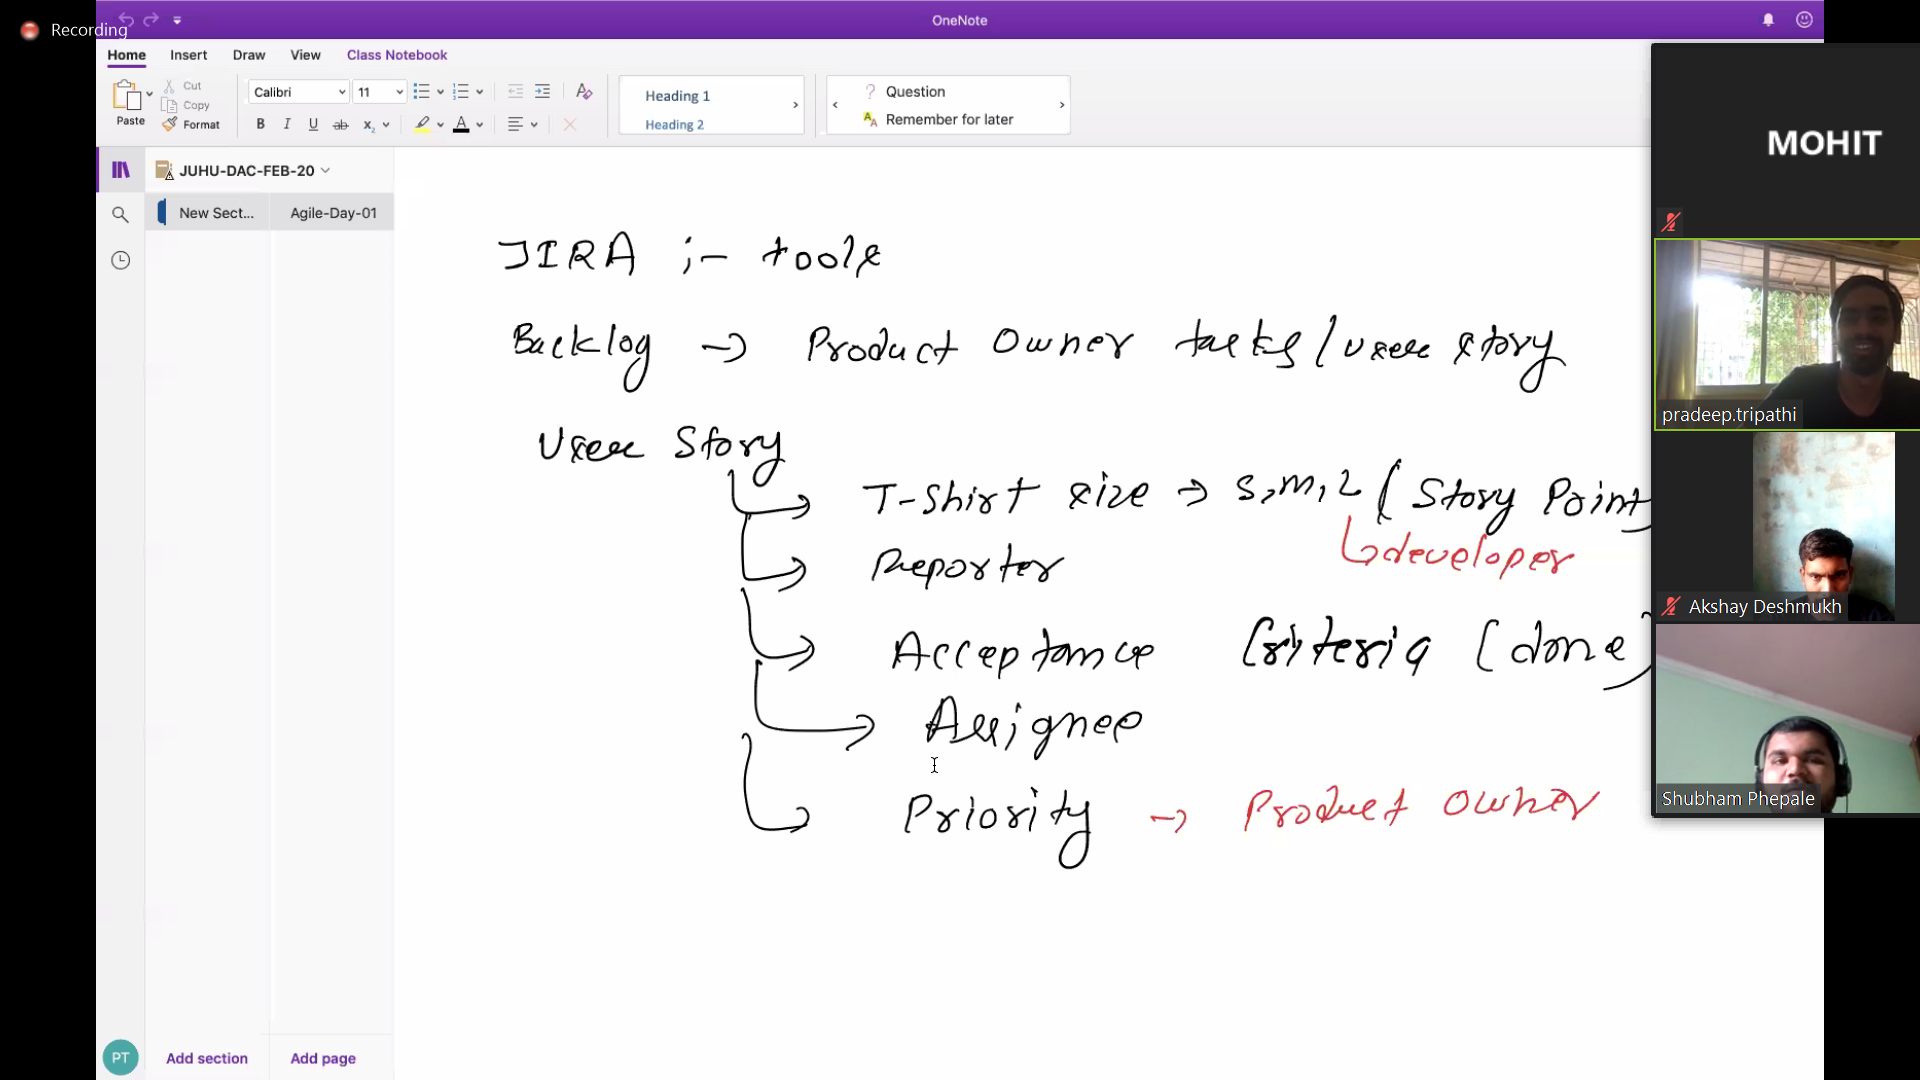 Recording
OneNote
Home Insert Draw View Class Notebook
Paste
Cut
Copy
Format
Calibri 11
B I U ab x₂ A
Heading 1
Heading 2
? Question
Remember for later
JUHU-DAC-FEB-20
New Sect... Agile-Day-01
JIRA :- tools
Backlog → Product Owner tasks/user story
User Story
T-Shirt size → S,M,L (Story Point)
developer
Reporter
Acceptance Criteria (done)
Assignee
Priority → Product Owner
MOHIT
pradeep.tripathi
Akshay Deshmukh
Shubham Phepale
PT
Add section Add page